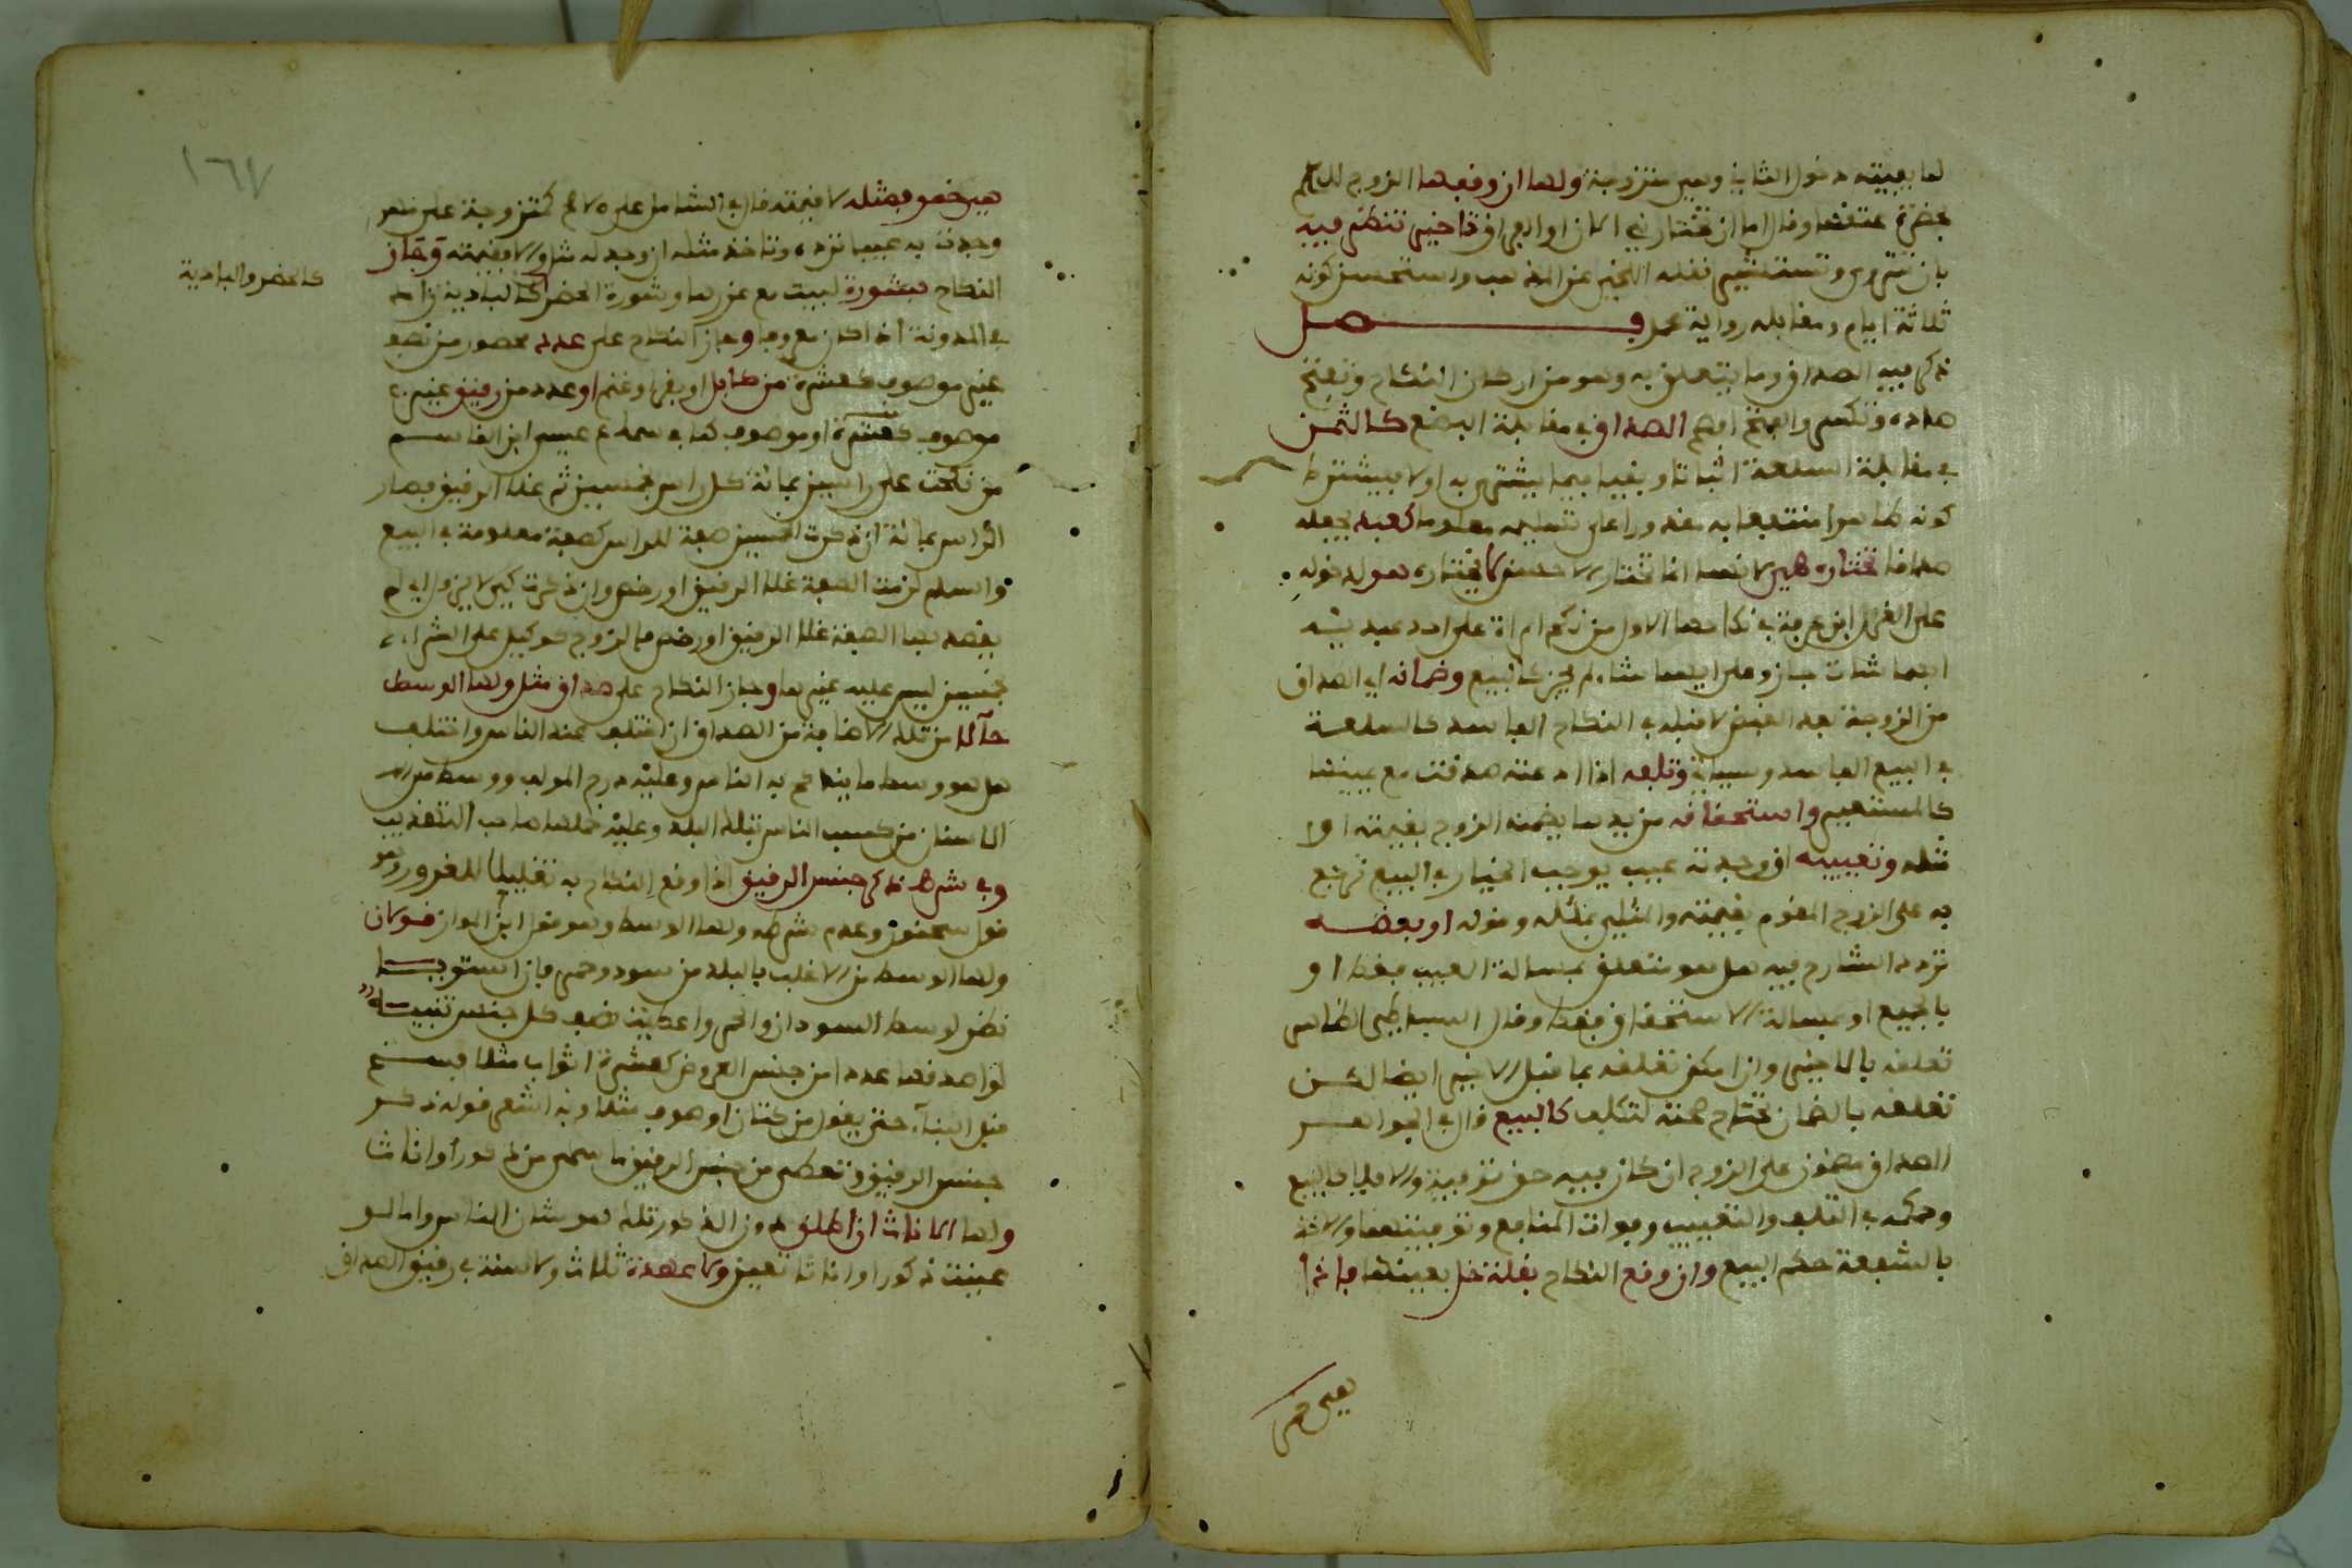 لها بغيبته دخول الثاني وهي متزوجة ولها إن أوقفها الزوج للحاكم
بحضرة عتقها وقال إما أن تختاري الآن أو الفراق تأخير تنظر فيه
بأن تتروى وتستشير نقله اللخمي عن المذهب واستحسن كونه
ثلاثة أيام ومقابله رواية محمد فصل
ذكر فيه الصداق وما يتعلق به وهو من أركان النكاح وتفتح
صاده وتكسر والفتح أفصح الصداق في مقابلة البضع كالثمن
في مقابلة السلعة اثباتا ونفيا فيما يشترى به أولا فيشترط
كونه طاهرا منتفعا به مقدورا على تسليمه معلوما كعبد يجعله
صداقا تختاره هي لأنها إنما تختار الأحسن لا يختاره هو لدخوله
على الغرر ابن عرفة في نكاحها الأول من نكح امرأة على أحد عبديه
أيهما شاءت جاز وعلى أيهما شاء لم يجز كالبيع وضمانه أي الصداق
من الزوجة بعد القبض لا قبله في النكاح الفاسد كالسلعة
في البيع الفاسد وسيأتي وتلفه إذا ادعته صدقت مع يمينها
كالمستعير واستحقاقه من يدها يضمنه الزوج بقيمته أو
مثله وتعييبه أو وجدته بعيب يوجب الخيار في البيع ترجع
به على الزوج المقوم بقيمته والمثلي بمثله وقوله أو بعضه
تردد الشارح فيه هل هو متعلق بمسألة العيب فقط أو
بالجميع أو بمسألة الاستحقاق فقط وقال البساطي الظاهر
تعلقه بالأخير وإن أمكن تعلقه بما قبل الأخير أيضا لكن
تعلقه بالضمان تحتاج صحته لتكلف كالبيع قال في الجواهر
الصداق مضمون على الزوج إن كان فيه حق توفية وإلا فلا كالبيع
وحكمه في التلف والتعييب وفوات المنافع وتوفيتها والأخذ
بالشفعة حكم البيع وإن وقع النكاح بقلة خل بعينها فإذا
هي خمر
هي خمر فمثله لا قيمته قال في الشامل على الأصح كمتزوجة على مهر
وجدت به عيبا ترده وتأخذ مثله إن وجد له مثل وإلا فقيمته وجاز
النكاح بشورة لبيت مع عزها وشورة الحضر كالبادية زاد
كالحضر والبادية
في المدونة إذا كان معروفا وجاز النكاح على عدد محصور من نصف
غير موصوف كعشرة من كابل أو بقر أو غنم أو عدد من رقيق غير
موصوف كعشرة أو موصوف كما في سماع عيسى ابن القاسم
من نكحت على راسين بمائة كل راس بخمسين ثم غلا الرقيق فصار
الراس بمائة إن ذكرت الخمسين صفة للراس كصفة معلومة في البيع
والسلم لزمت الصفة غلا الرقيق أو رخص وإن ذكرت كي لا يزول إلى
يقصد بها الصفة غلا الرقيق أو رخص فالزوج كوكيل على الشراء
بخمسين ليس عليه غيرها وجاز النكاح على صداق مثل ولها الوسط
حالا من تلك الأصناف من الصداق إن اختلف عند الناس واختلف
هل هو وسط ما يتناكح به الناس وعليه درج المؤلف ووسط من
الأسنان من كسب الناس بتلك البلد وعليه حملها صاحب التهذيب
وفي شرط ذكر جنس الرقيق إذا وقع النكاح به تقليلا للغرر وهو
قول سحنون وعدم شرطه ولها الوسط وهو قول ابن المواز قولان
ولها الوسط من الأغلب بالبلد من سود وحمر فإن استويا
نظر لوسط السودان والحمر وأعطيت نصف كل جنس تنبيه
لو أصدقها عددا من جنس العروض كعشرة أثواب مثلا فسخ
قبل البناء حتى يقول من كتان أو صوف مثلا وبه أشعر قوله ذكر
جنس الرقيق وتعطى من جنس الرقيق ما سمى من ذكور أو إناثا
ولها الإناث إن أطلق دون الذكور تلك هو شأن الناس وأما لو
عينت ذكورا أو إناثا تعين ولا عهدة ثلاث ولا سنة في رقيق الصداق
١٦٧